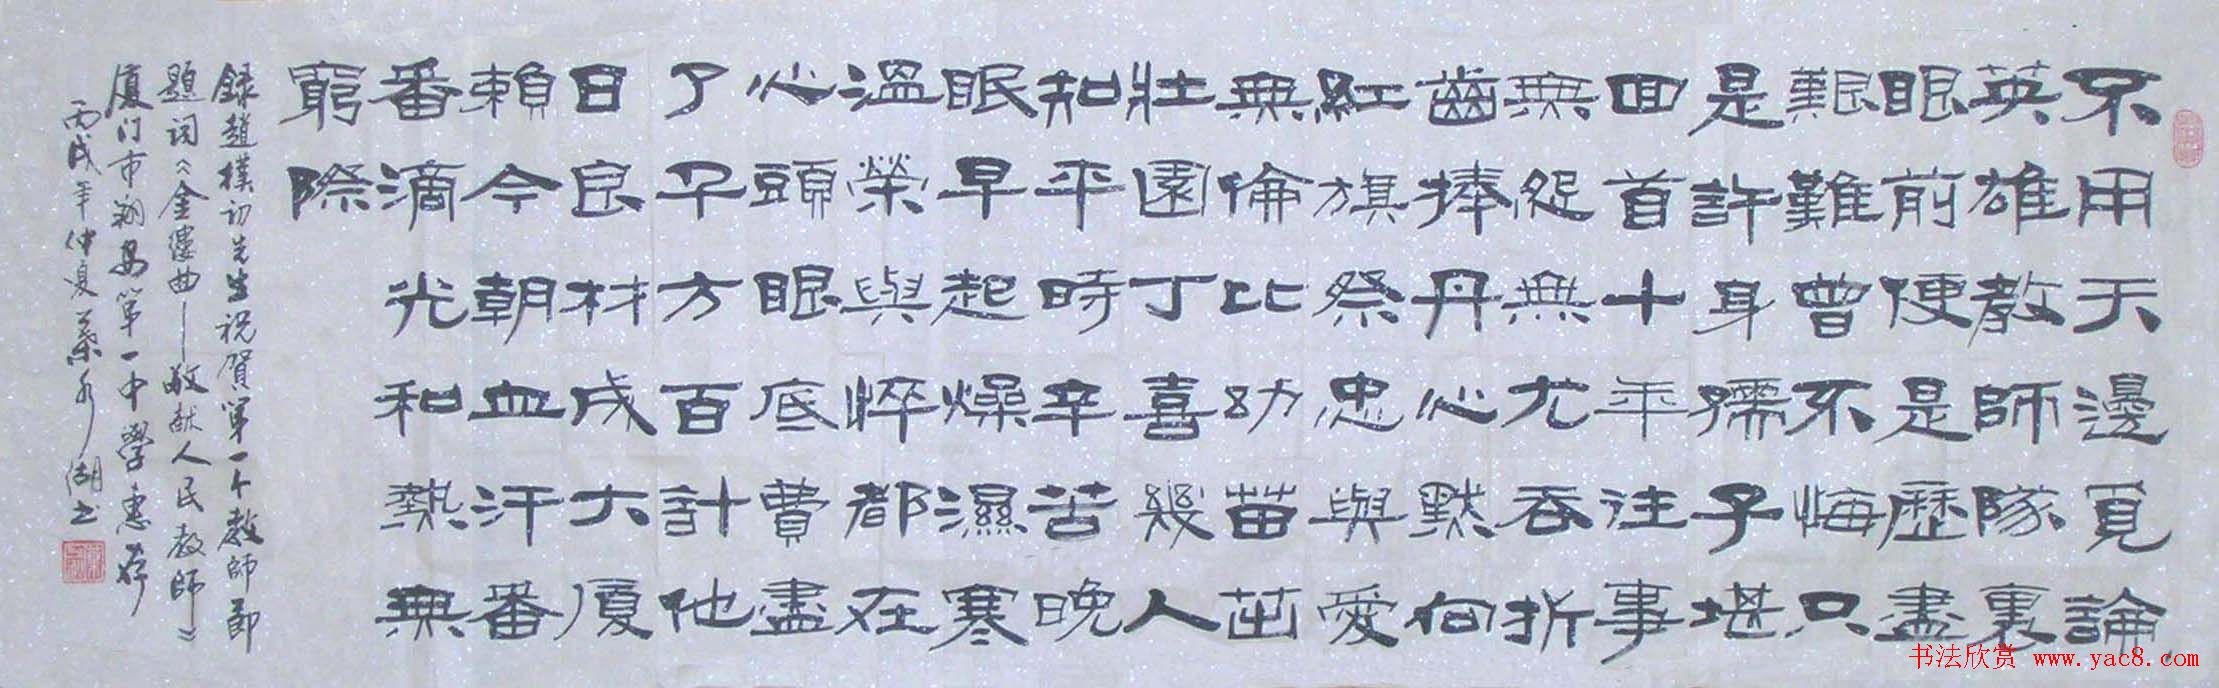 不用天邊覓論
英雄教師隊裏
眼前便是歷盡
艱難曾不悔只
是許身孺子堪
回首十年往事
無怨無尤吞折
齒捧丹心默向
紅旗祭忠與愛
無倫比幼苗茁
壯園丁喜幾人
知平時辛苦晚
眠早起燥濕寒
溫榮與悴都在
心頭眼底費盡
了千方百計他
日良材成大廈
賴今朝血汗番
番滴光和熱無
窮際
録趙樸初先生祝賀第一个教師節
題词《金縷曲—敬献人民教師》
厦门市翔安第一中學惠存
丙戌年仲夏蔡水湖书
书法欣赏 www.yac8.com